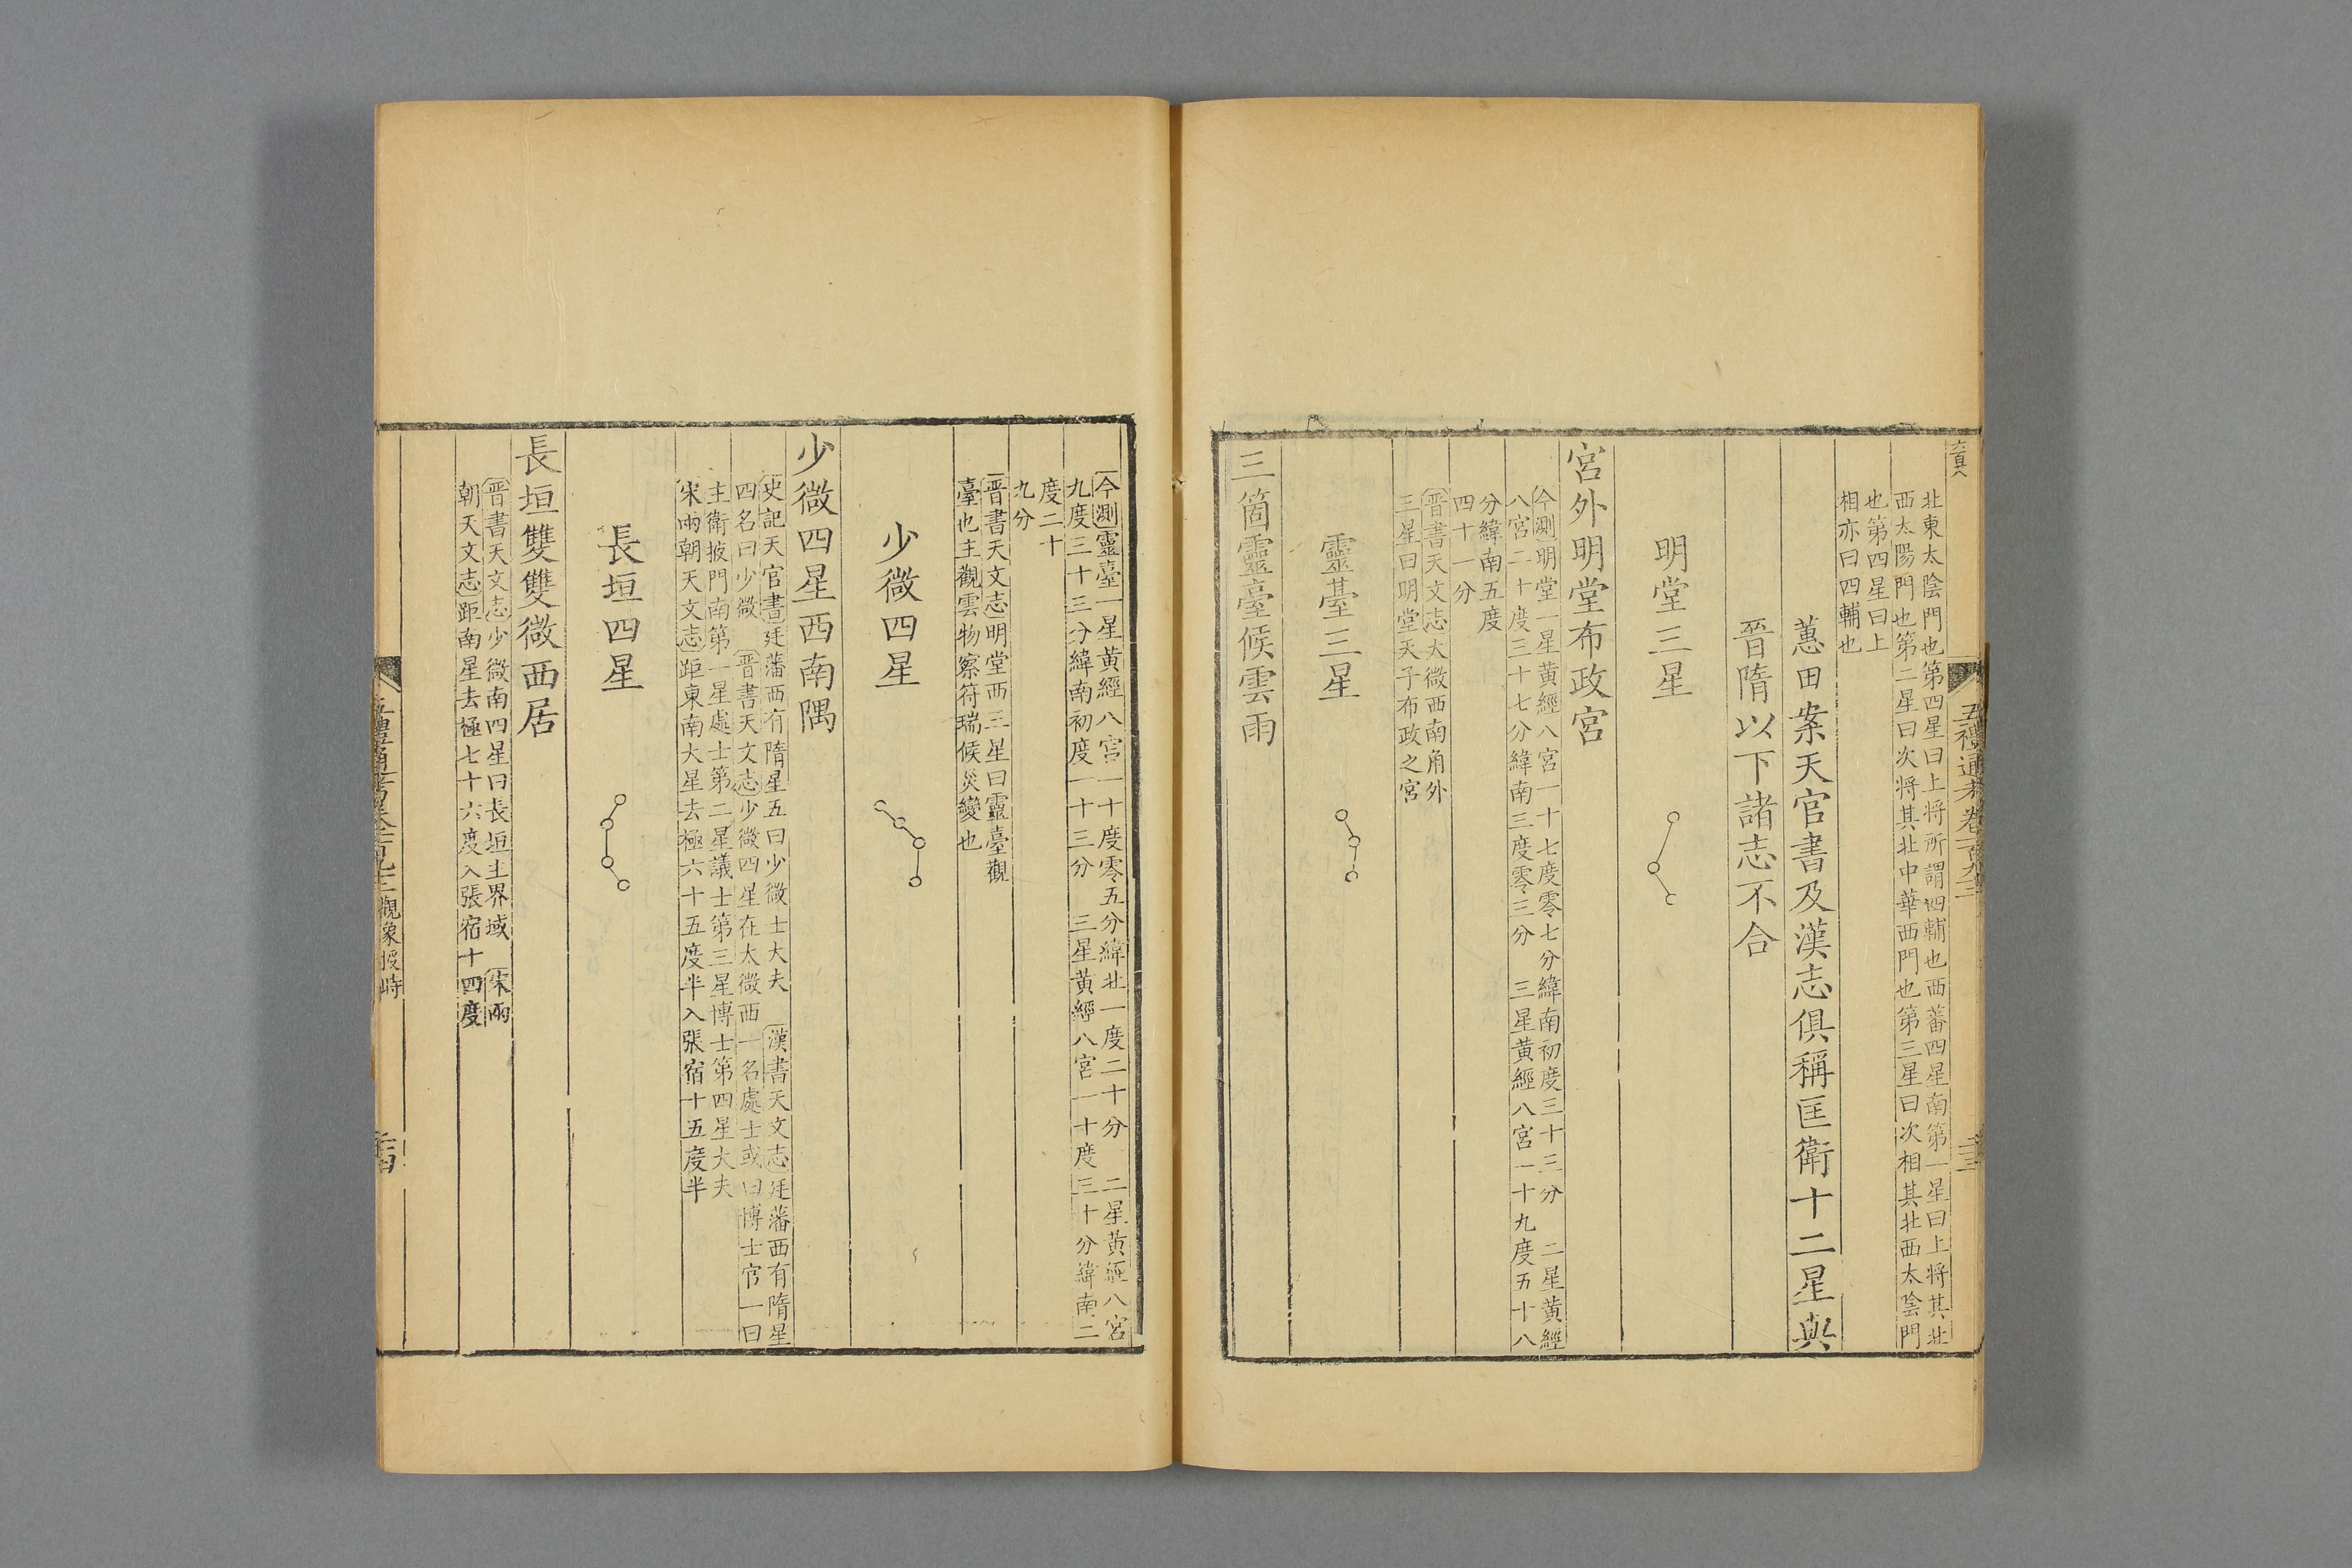 北東太陰門也第四星曰上將所謂四輔也西蕃四星南第一星曰上將其北
西太陽門也第二星曰次將其北中華西門也第三星曰次相其北西太陰門
也第四星曰上
相亦曰四輔也
蕙田案天官書及漢志俱稱匡衛十二星與
晉隋以下諸志不合
明堂三星
宮外明堂布政宮
今測明堂一星黃經八宮一十七度零七分緯南初度三十三分 二星黃經
八宮二十度三十七分緯南三度零三分 三星黃經八宮一十九度五十八
分緯南五度
四十一分
晉書天文志太微西南角外
三星曰明堂天子布政之宮
靈臺三星
三箇靈臺候雲雨
今測靈臺一星黃經八宮一十度零五分緯北一度二十分 二星黃經八宮
九度三十三分緯南初度一十三分 三星黃經八宮一十度三十分緯南二
度二十
九分
晉書天文志明堂西三星曰靈臺觀
臺也主觀雲物察符瑞候災變也
少微四星
少微四星西南隅
史記天官書廷藩西有隋星五曰少微士大夫 漢書天文志廷藩西有隋星
四名曰少微 晉書天文志少微四星在太微西一名處士或曰博士官一曰
主衛掖門南第一星處士第二星議士第三星博士第四星大夫
宋兩朝天文志距東南大星去極六十五度半入張宿十五度半
長垣四星
長垣雙雙微西居
晉書天文志少微南四星曰長垣主界域 宋兩
朝天文志距南星去極七十六度入張宿十四度
觀象授時